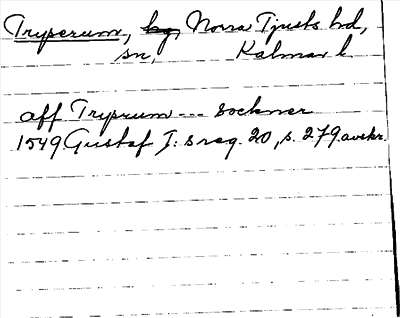 Tryserum, hg, Norra Tjusts hd,
sn, Kalmar l.
aff Trysrum --- Sockner
1549 Gustaf I:s reg. 20, s. 279 avskr.